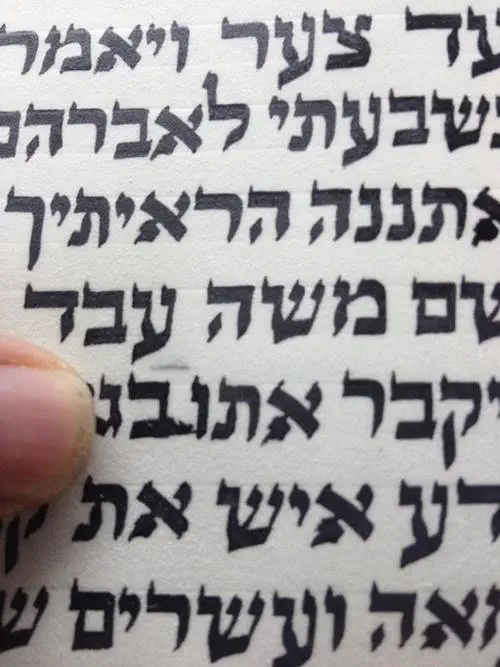 עד צער ויאמר
נשבעתי לאברהם
אתננה הראיתיך
שם משה עבד
יקבר אתו בג
דע איש את ק
מאה ועשרים ש